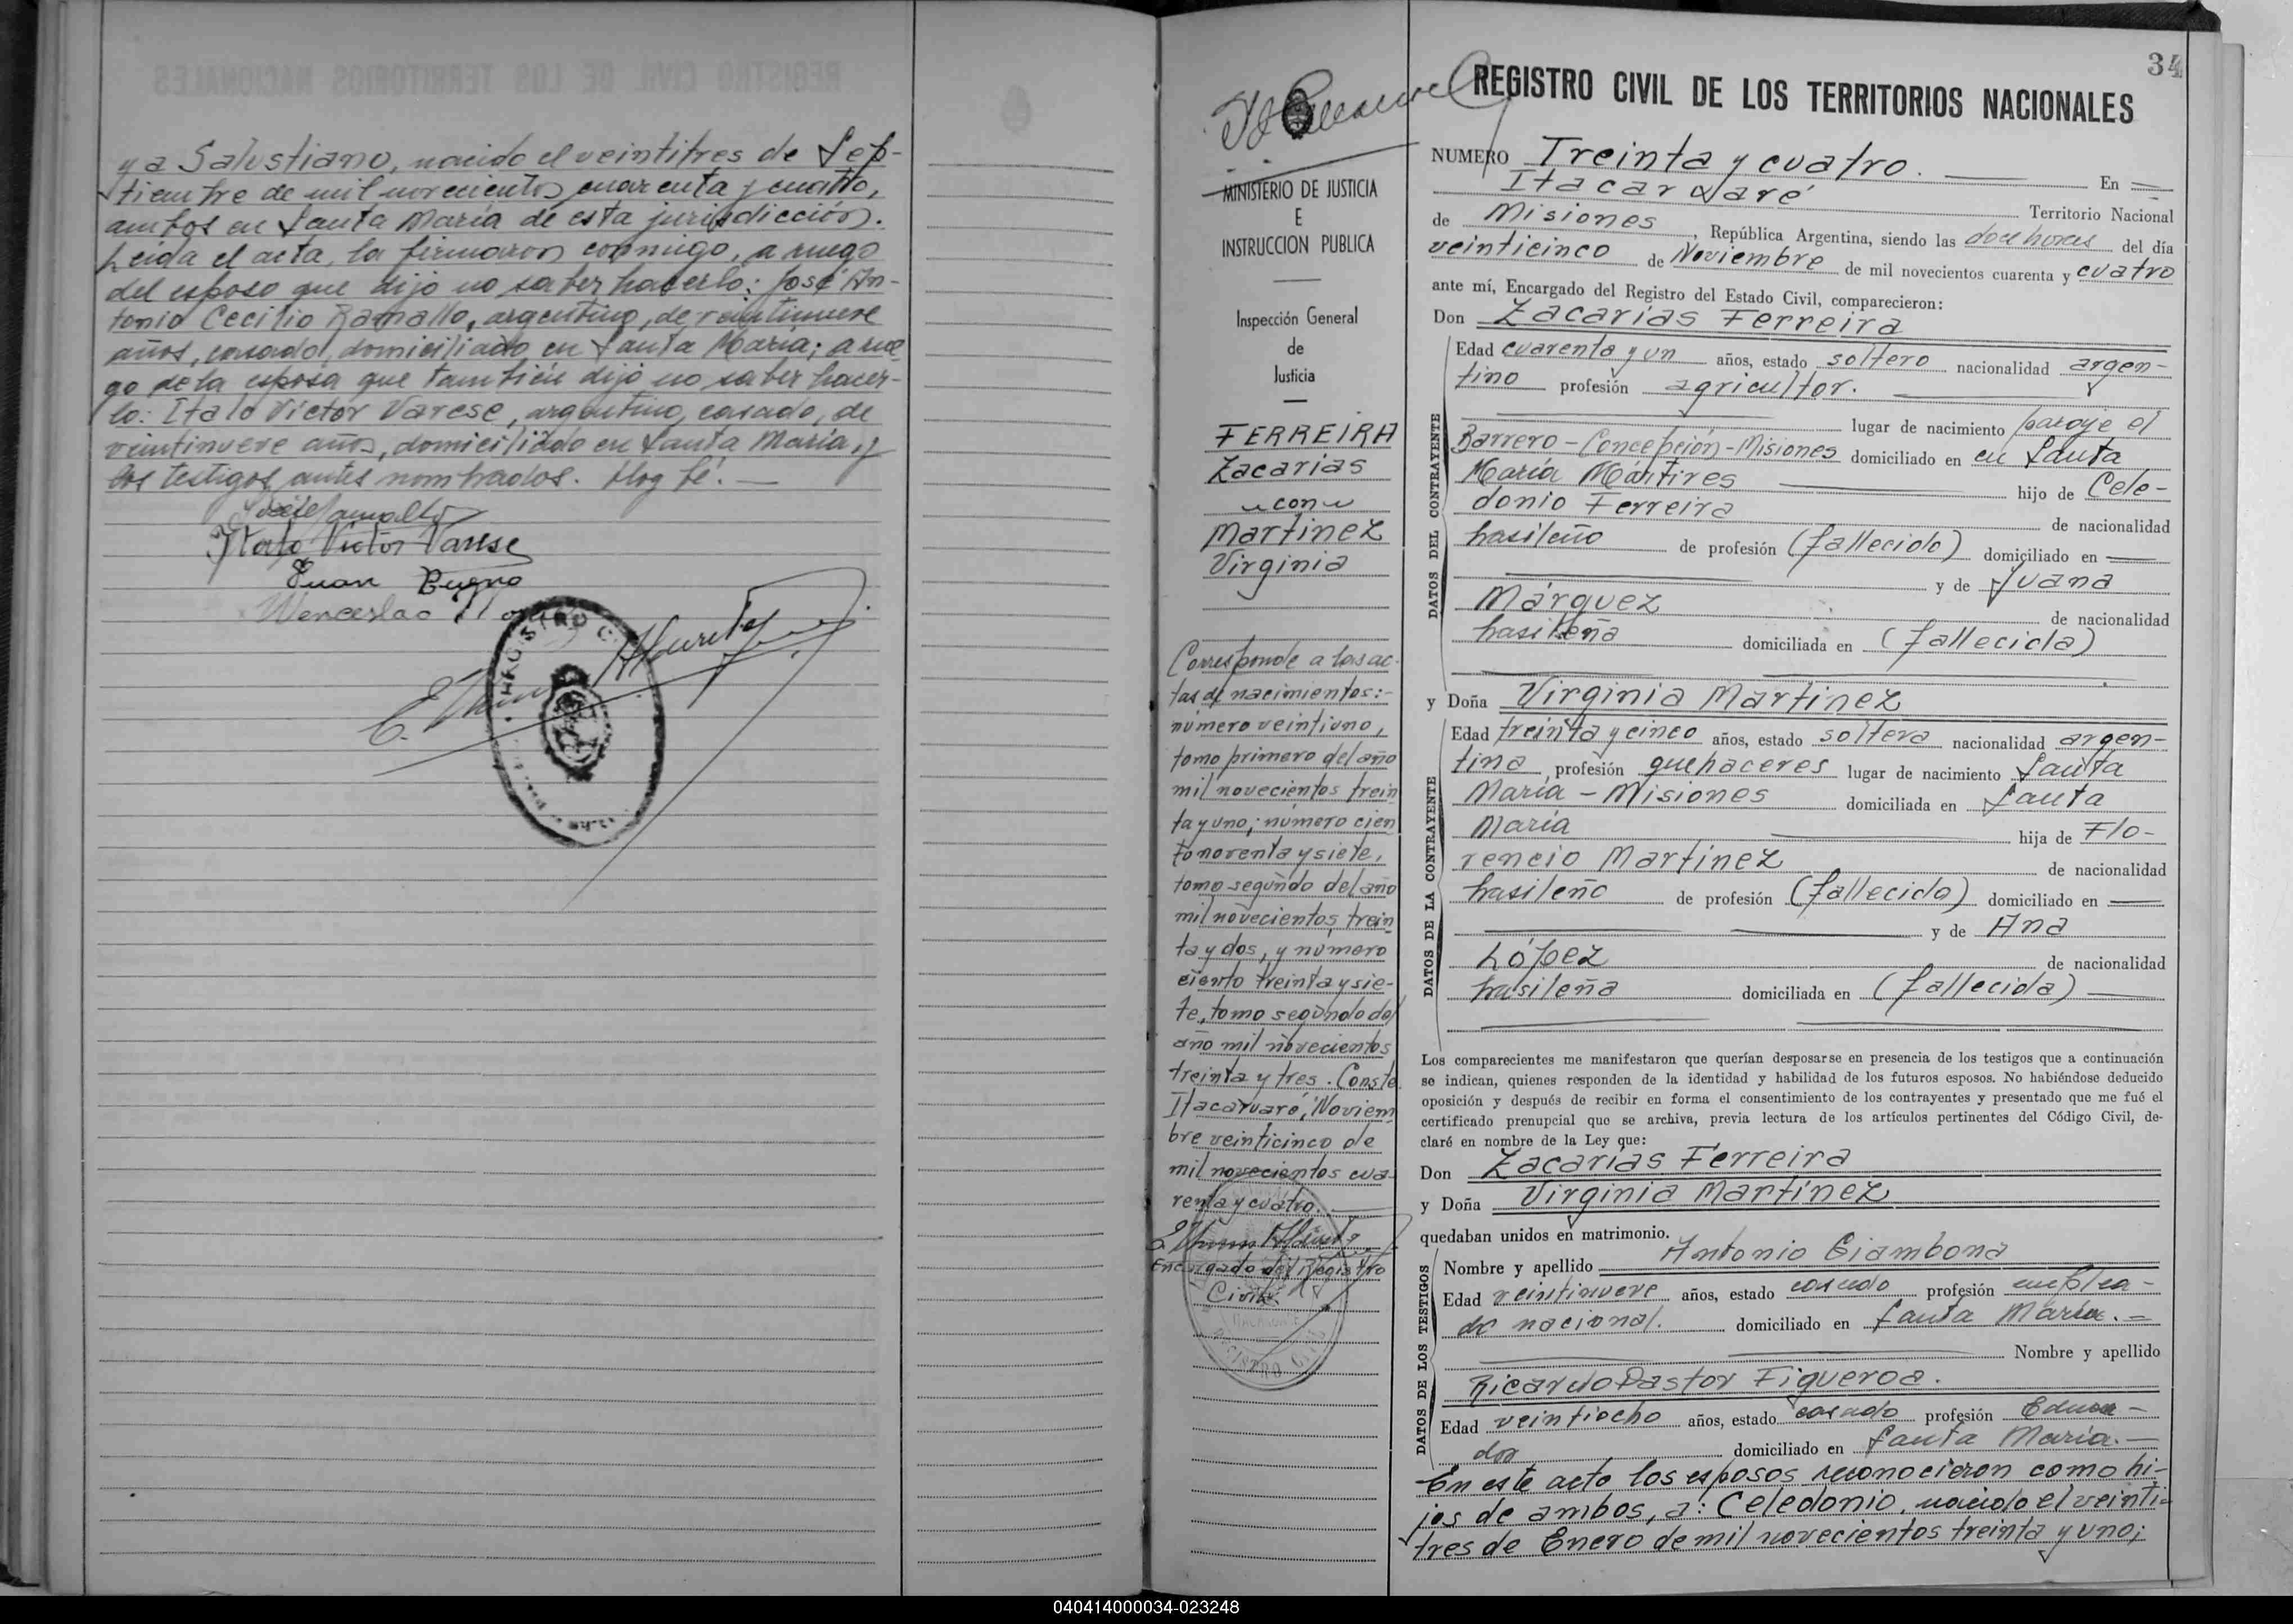 y a Salustiano, nacido el veintitres de Sep-
tiembre de mil novecientos cuarenta y cuatro,
ambos en Santa María de esta jurisdicción.
Leída el acta, la firmaron conmigo, a ruego
del esposo que dijo no saber hacerlo: José An-
tonio Cecilio Ramallo, argentino, de veintinueve
años, casado, domiciliado en Santa María; a rue-
go de la esposa que también dijo no saber hacer-
lo: Italo Victor Varese, argentino, casado, de
veintinueve años, domiciliado en Santa María, y
los testigos antes nombrados. Doy fé. —
Italo Victor Varese
Juan
Wenceslao
34
REGISTRO CIVIL DE LOS TERRITORIOS NACIONALES
MINISTERIO DE JUSTICIA
E
INSTRUCCION PUBLICA
Inspección General
de
Justicia
FERREIRA
Zacarías
con
Martinez
Virginia
Corresponde a las ac-
tas de nacimientos:-
número veintiuno,
tomo primero del año
mil novecientos trein
ta y uno; número cien
to noventa y siete,
tomo segundo del año
mil novecientos trein
ta y dos, y número
ciento treinta y sie-
te, tomo segundo del
año mil novecientos
treinta y tres. Conste
Itacaruaré, Noviem
bre veinticinco de
mil novecientos cua-
renta y cuatro.
Encargado del Registro
Civil
REGISTRO CIVIL
NUMERO Treinta y cuatro. En
Itacaruaré Territorio Nacional
de Misiones, República Argentina, siendo las doce horas del día
veinticinco de Noviembre de mil novecientos cuarenta y cuatro
ante mí, Encargado del Registro del Estado Civil, comparecieron:
Don Zacarías Ferreira
DATOS DEL CONTRAYENTE
Edad cuarenta y un años, estado soltero nacionalidad argen-
tino profesión agricultor.
lugar de nacimiento paraje el
Barrero-Concepción-Misiones domiciliado en en Santa
María Mártires hijo de Cele-
donio Ferreira de nacionalidad
brasileño de profesión (fallecido) domiciliado en
y de Juana
Márquez de nacionalidad
brasileña domiciliada en (fallecida)
y Doña Virginia Martinez
DATOS DE LA CONTRAYENTE
Edad treinta y cinco años, estado soltera nacionalidad argen-
tina, profesión quehaceres lugar de nacimiento Santa
María - Misiones domiciliada en Santa
María hija de Flo-
rencio Martinez de nacionalidad
brasileño de profesión (fallecido) domiciliado en
y de Ana
López de nacionalidad
brasileña domiciliada en (fallecida)
Los comparecientes me manifestaron que querían desposarse en presencia de los testigos que a continuación
se indican, quienes responden de la identidad y habilidad de los futuros esposos. No habiéndose deducido
oposición y después de recibir en forma el consentimiento de los contrayentes y presentado que me fué el
certificado prenupcial que se archiva, previa lectura de los artículos pertinentes del Código Civil, de-
claré en nombre de la Ley que:
Don Zacarías Ferreira
y Doña Virginia Martinez
quedaban unidos en matrimonio.
DATOS DE LOS TESTIGOS
Nombre y apellido Antonio Giambona
Edad veintinueve años, estado casado profesión emplea-
do nacional. domiciliado en Santa María.
Nombre y apellido
Ricardo Pastor Figueroa.
Edad veintiocho años, estado casado profesión Educa-
dor domiciliado en Santa María.
En este acto los esposos reconocieron como hi-
jos de ambos, a: Celedonio, nacido el veinti-
tres de Enero de mil novecientos treinta y uno;
040414000034-023248